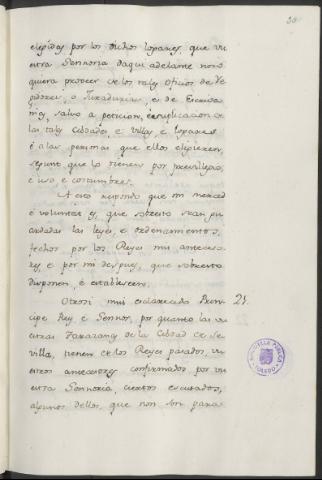 30
elegidas por los dichos logares, que vu
estra Sennoria daqui adelante non
quiera proveer de los tales oficios de Re
gidores, o Juradurias, e de Escriva
nias, salvo a peticion, e suplicacion de
las tales Cibdades, e villas, e logares
é a las personas que ellos eligieren,
segunt que lo tienen por previllegio,
é uso e costumbres.
A esto respondo que mi merced
é voluntad es, que sobresto sean gu
ardadas las leyes, e ordenamientos,
fechos por los Reyes mis anteceso
res, e por mi despues, que sobresto
disponen, é establescen.
Otrosi mui esclarecido Prin
25.
cipe Rey e Sennor, por quanto las vu
estras Tarazanas de la Cibdad de Se
villa, tienen de los Reyes pasados, vu
estros antecesores confirmados por vu
estra Sennoria, ciertos escusados,
algunos dellos, que non son para
TOLEDO